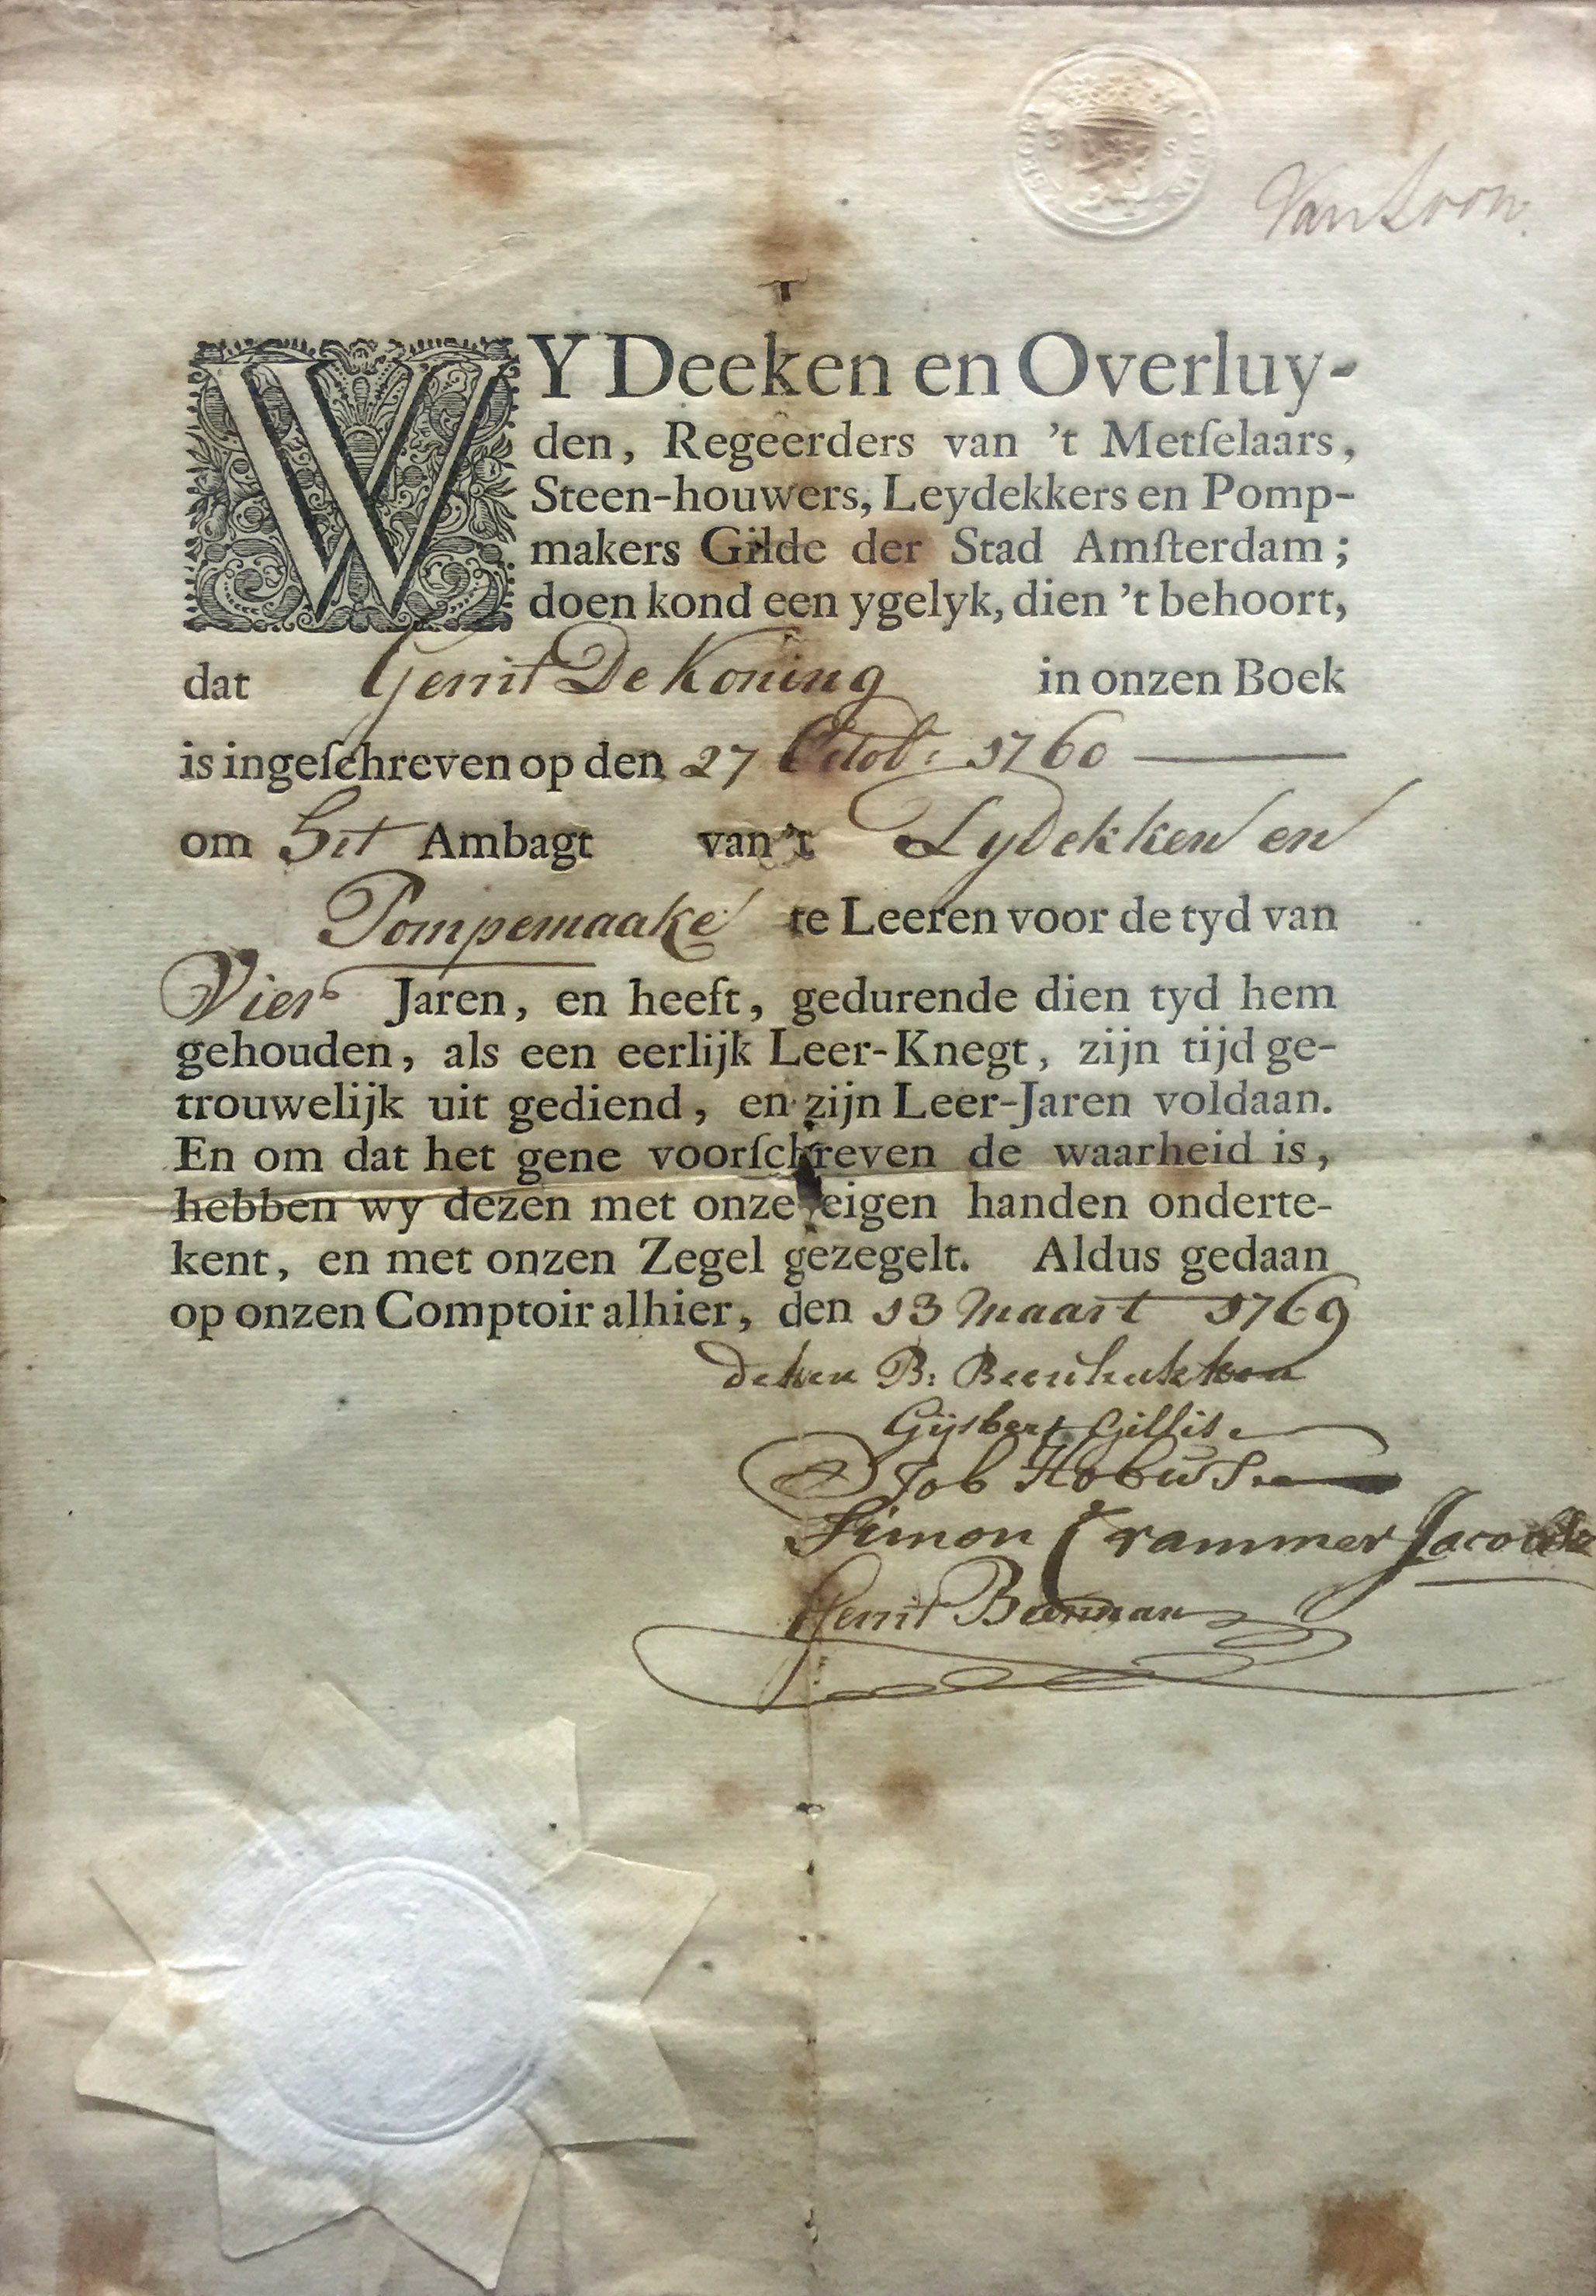 Van Loon.
WY Deeken en Overluy-
den, Regeerders van 't Metſelaars,
Steen-houwers, Leydekkers en Pomp-
makers Gilde der Stad Amſterdam;
doen kond een ygelyk, dien 't behoort,
dat Gerrit De Koning in onzen Boek
is ingeſchreven op den 27 Octobr: 1760
om Hit Ambagt van't Lydekken en
Pompemaake te Leeren voor de tyd van
Vier Jaren, en heeft, gedurende dien tyd hem
gehouden, als een eerlijk Leer-Knegt, zijn tijd ge-
trouwelijk uit gediend, en zijn Leer-Jaren voldaan.
En om dat het gene voorſchreven de waarheid is,
hebben wy dezen met onze eigen handen onderte-
kent, en met onzen Zegel gezegelt. Aldus gedaan
op onzen Comptoir alhier, den 13 Maart 1769
deken B: Beenhakker
Gijsbert Gillis
Job
Simon Crammer
Gerrit